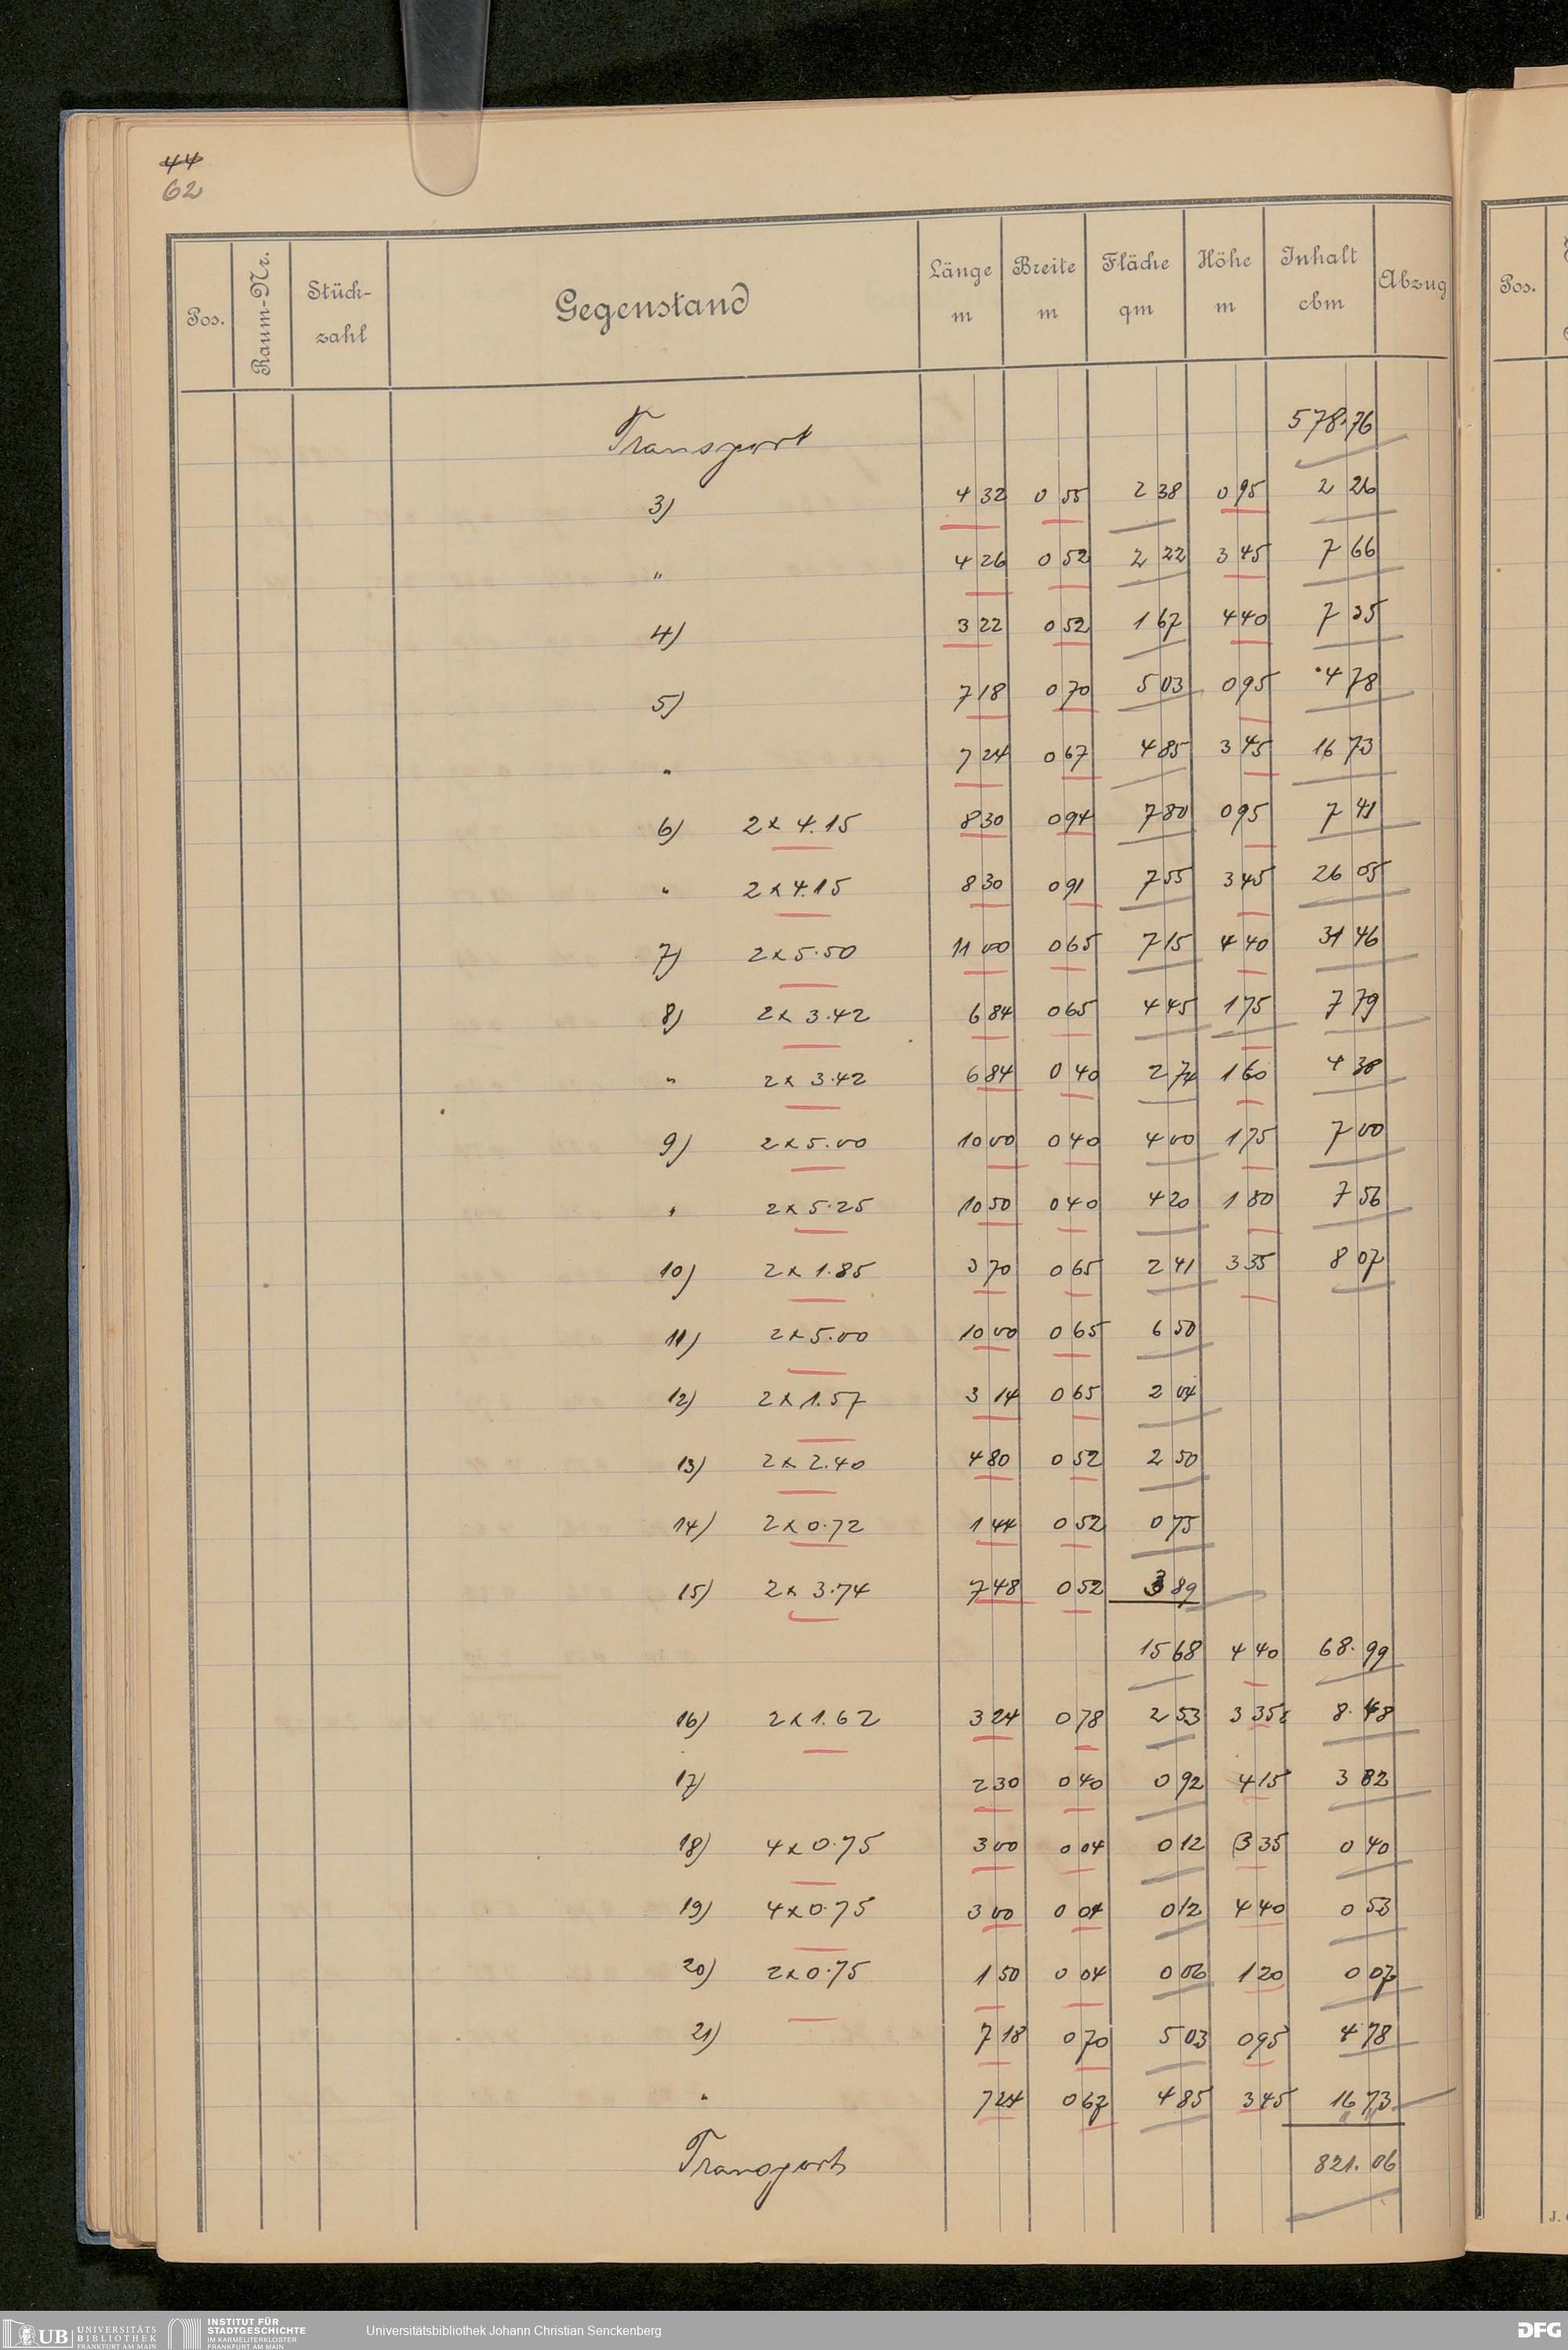 44
62
Pos. Raum-Nr. Stück-zahl Gegenstand Länge m Breite m Fläche qm Höhe m Inhalt cbm Abzug
Transport 578.76
3) 4 32 0 55 2 38 0 95 2 26
" 4 26 0 52 2 22 3 45 7 66
4) 3 22 0 52 1 67 4 40 7 35
5) 7 18 0 70 5 03 0 95 4 78
" 7 24 0 67 4 85 3 45 16 73
6) 2 x 4.15 8 30 0 94 7 80 0 95 7 41
" 2 x 4.15 8 30 0 91 7 55 3 45 26 05
7) 2 x 5.50 11 00 0 65 7 15 4 40 31 46
8) 2 x 3.42 6 84 0 65 4 45 1 75 7 79
" 2 x 3.42 6 84 0 40 2 74 1 60 4 38
9) 2 x 5.00 10 00 0 40 4 00 1 75 7 00
" 2 x 5.25 10 50 0 40 4 20 1 80 7 56
10) 2 x 1.85 3 70 0 65 2 41 3 35 8 07
11) 2 x 5.00 10 00 0 65 6 50
12) 2 x 1.57 3 14 0 65 2 04
13) 2 x 2.40 4 80 0 52 2 50
14) 2 x 0.72 1 44 0 52 0 75
15) 2 x 3.74 7 48 0 52 3 89
15 68 4 40 68.99
16) 2 x 1.62 3 24 0 78 2 53 3 35 8.48
17) 2 30 0 40 0 92 4 15 3 82
18) 4 x 0.75 3 00 0 04 0 12 3 35 0 40
19) 4 x 0.75 3 00 0 04 0 12 4 40 0 53
20) 2 x 0.75 1 50 0 04 0 06 1 20 0 07
21) 7 18 0 70 5 03 0 95 4 78
" 7 24 0 67 4 85 3 45 16 73
Transport 821.06
Pos.
J.
UB UNIVERSITÄTS BIBLIOTHEK FRANKFURT AM MAIN
INSTITUT FÜR STADTGESCHICHTE IM KARMELITERKLOSTER FRANKFURT AM MAIN
Universitätsbibliothek Johann Christian Senckenberg
DFG